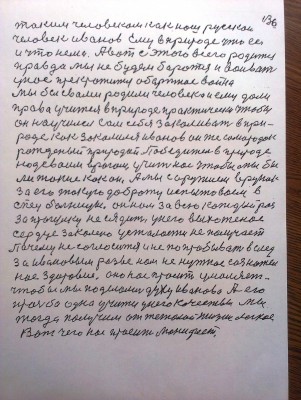 136
таким человеком как наш русской
человек иванов Ему в природе это все
и что нем. А вот с этого всего родится
правда мы не будем бороться и воивать
у нас прекратится обартное война
Мы ее сами родили человека ему дали
права учится в природе практически чтобы
он научился сам себя закаливать в при-
роде. Как закалился иванов он же самородок
рожденый природой. Победител в природе
надевали просят учится у нас чтобы мы бы
ли такие как он. А мы с оружием в руках
за его такую доброту испытоваем в
спец больницы, он нам за всю каждый раз
за прогулку не сядит, у него выложеное
сердце закалено усталости не получает
Почему не согласится и не попробывать в след
за Ивановым разве нам не нужное сознатель
ное здоровие. оно нас просит умаляет-
чтобы мы поделали духу иванова А его
прозба одна учится у него качества мы
тогда получим от тежолай жизни легкое.
Вот чего нас просит манифест.